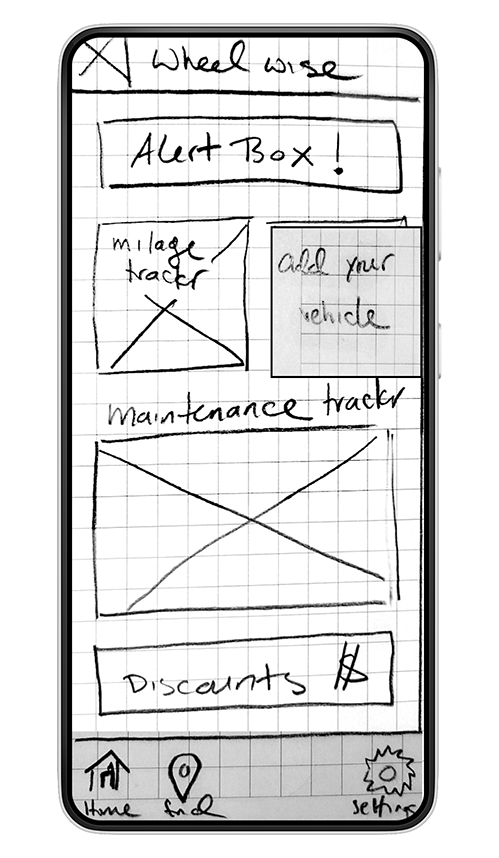 Wheel wise
Alert Box !
milage
trackr
add your
vehicle
maintenance trackr
Discounts $
Home
find
settings